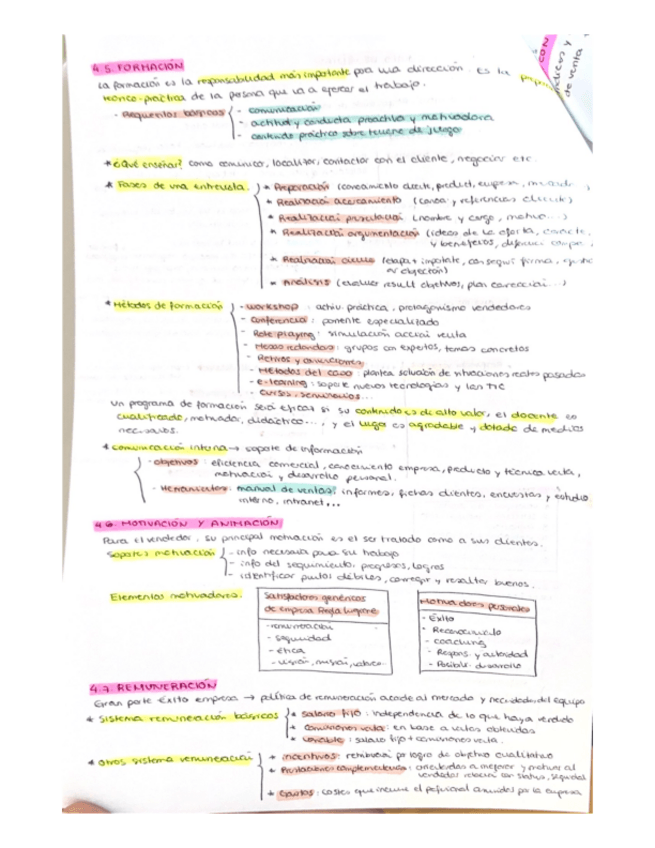 4.5. FORMACIÓN
La formación es la responsabilidad más importante para una dirección. Es la
teórico-práctica de la persona que va a ejercer el trabajo.
- Requisitos básicos
- comunicación
- actitud y conducta proactiva y motivadora
- contenido práctico sobre terreno de juego
CON
y
de venta
* ¿Qué enseñar? como comunico, localizo, contactar con el cliente, negociar etc.
* Fases de una entrevista.
* Preparación (conocimiento cliente, product, empresa,
* Realización acercamiento (conoce y referencias cliente)
* Realización presentación (nombre y cargo, motivo...)
* Realización argumentación (ideas de la oferta,
y beneficios,
* Realización cierre (etapa + importante, conseguir firma,
w objeción)
* Análisis (evaluar result objetivos, plan corrección...)
* Métodos de formación
- Workshop: activ. práctica, protagonismo vendedores
- Conferencia: ponente especializado
- Role playing: simulación acción venta
- Mesas redondas: grupos con expertos, temas concretos
- Retiros y convenciones
- Métodos del caso: plantea solución de situaciones reales pasadas
- e-learning: soporte nuevas tecnologías y las TIC
- Cursos, seminarios...
Un programa de formación será eficaz si su contenido es de alto valor, el docente es
cualificado, motivado, didáctico..., y el lugar es agradable y dotado de medios
necesarios.
* Comunicación interna → soporte de información
- objetivos: eficiencia comercial, conocimiento empresa, producto y técnica venta,
motivación y desarrollo personal.
- Herramientas: manual de ventas, informes, fichas clientes, encuestas y estudio
interno, intranet...
4.6. MOTIVACIÓN Y ANIMACIÓN
Para el vendedor, su principal motivación es el ser tratado como a sus clientes.
Soportes motivación
- info necesaria para su trabajo
- info del seguimiento, progresos, logros
- identificar puntos débiles, corregir y resaltar buenos.
Elementos motivadores.
Satisfactores genéricos
de empresa
- remuneración
- seguridad
- ética
- visión, misión, valores
Motivadores personales
- Éxito
- Reconocimiento
- coaching
- Respons. y autoridad
- Posibil. desarrollo
4.7. REMUNERACIÓN
Gran parte éxito empresa → política de remuneración acorde al mercado y necesidades del equipo
* Sistema remuneración básicos
* Salario fijo: independencia de lo que haya vendido
* Comisiones venta: en base a ventas obtenidas
* Variable: salario fijo + comisiones venta
* Otros sistema remuneración
* Incentivos: retribución por logro de objetivo cualitativo
* Prestaciones complementarias: orientadas a mejorar y motivar al
vendedor relación con status, seguridad
* Gastos: costes que incurre el personal asumidos por la empresa